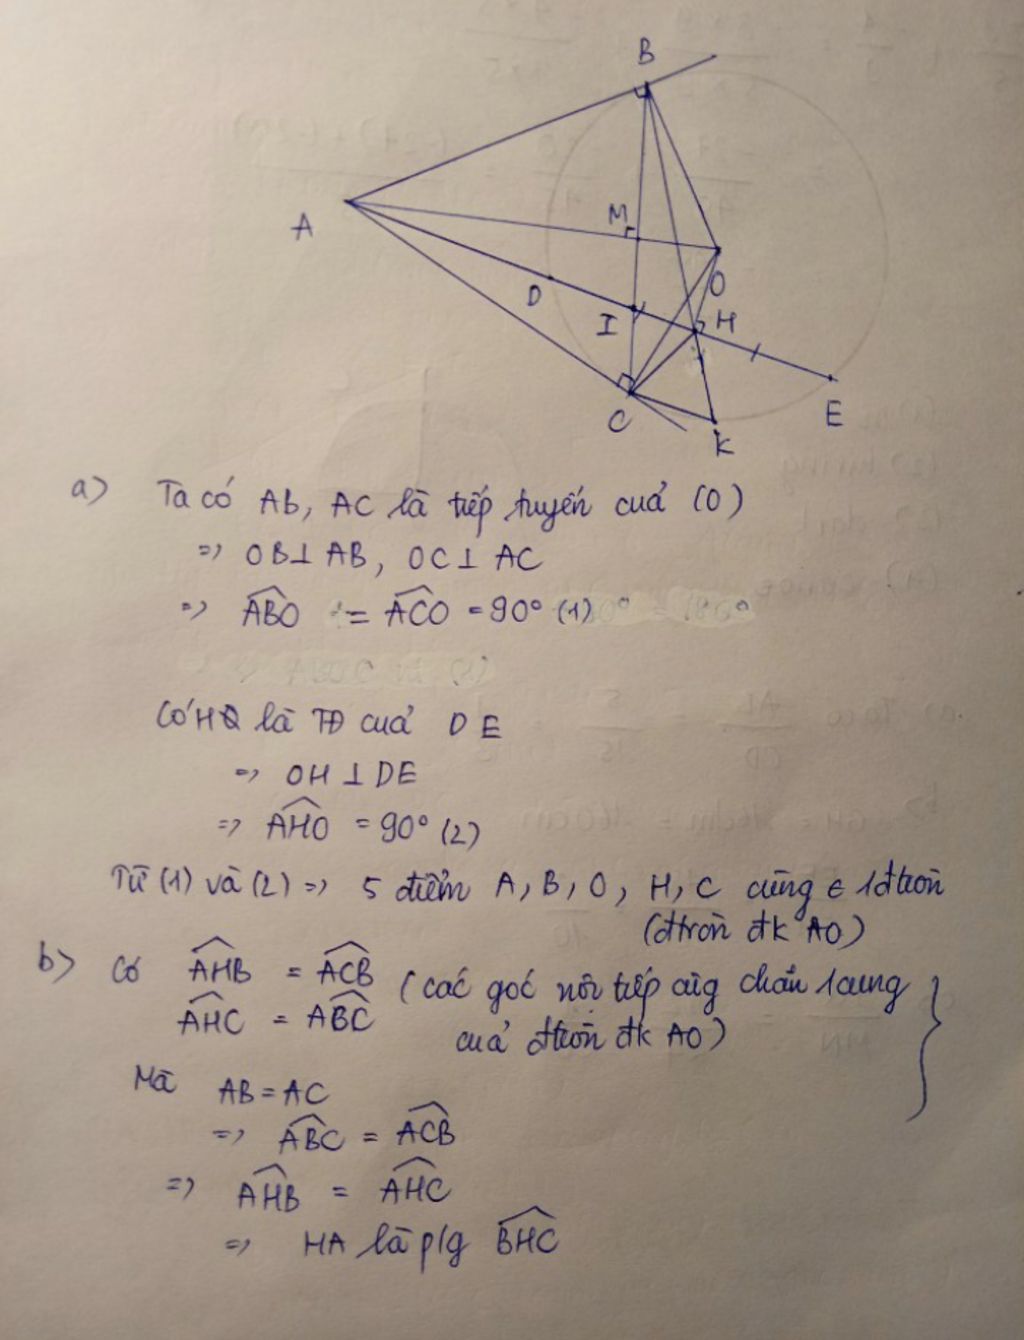 B
A
M
O
D
I
H
C
E
K
a) Ta có AB, AC là tiếp tuyến cuả (O)
=> OB⊥AB, OC⊥AC
=> ABO = ACO = 90° (1)
Có H là TĐ cuả DE
=> OH⊥DE
=> AHO = 90° (2)
Từ (1) và (2) => 5 điểm A, B, O, H, C cùng ∈ 1 đtròn
(đtròn đk AO)
b) Có AHB = ACB (các góc nội tiếp cùg chắn 1 cung
AHC = ABC cuả đtròn đk AO)
Mà AB = AC
=> ABC = ACB
=> AHB = AHC
=> HA là p/g BHC